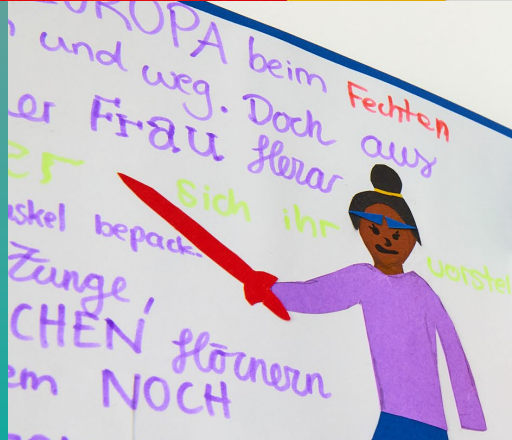 EUROPA beim Fechten
und weg. Doch aus
er Frau Herar
er sich ihr vorstel
uskel bepack.
Zunge,
CHEN Hörnern
em NOCH